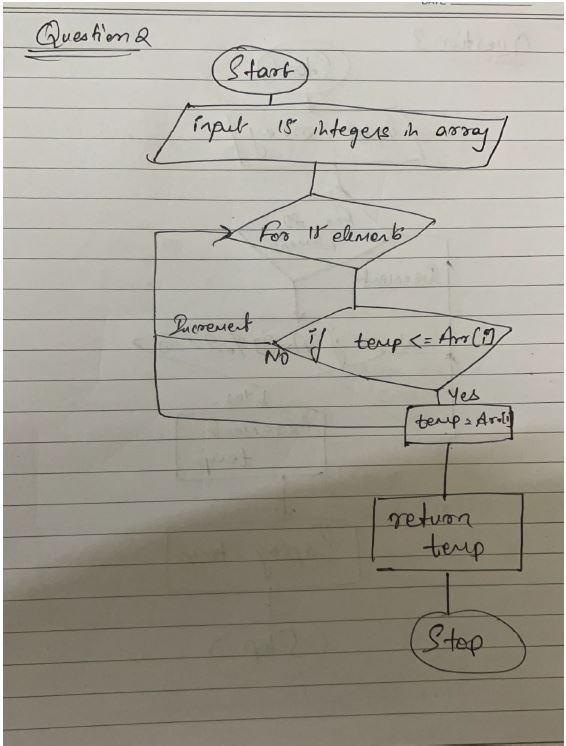 Question 2
Start
input 15 integers in array
For 15 element
Increment
No
if temp <= Arr[i]
Yes
temp = Arr[i]
return
temp
Stop